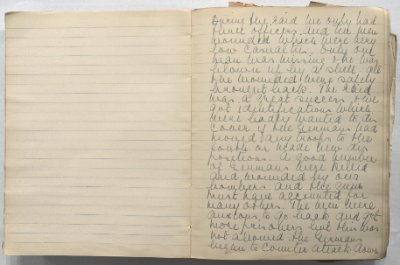 During the raid we only had
three officers and ten men
wounded which were very
few casualties. Only one
man was missing & he was
blown up by a shell. All
the wounded were safely
brought back. The raid
was a great success, we
got identifications which
were badly wanted to dis
cover if the Germans had
moved any troops to the
south or made new dis
positions. A good number
of Germans were killed
and wounded by our
bombers and the guns
must have accounted for
many others. The men were
anxious to go back and get
more prisoners but this was
not allowed. The Germans
began to counter attack down